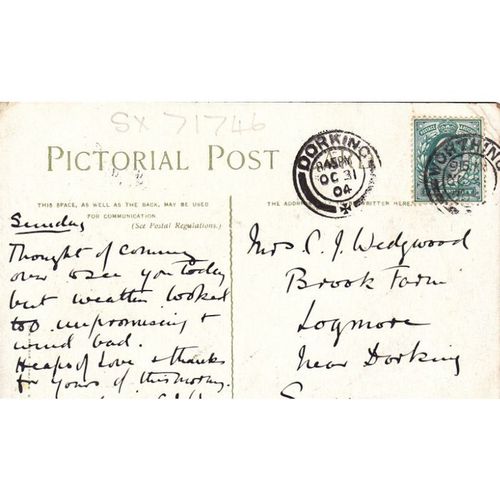 SX 71746
PICTORIAL POST
THIS SPACE, AS WELL AS THE BACK, MAY BE USED
FOR COMMUNICATION.
(See Postal Regulations.)
Sunday
Thought of coming
over to see you today
but weather looked
too unpromising &
wind bad.
Heaps of Love & thanks
for yours of this morng.
THE ADDRE
WRITTEN HERE.
DORKING
8.45 PM
OC 31
04
WORTHING
Mrs C. J. Wedgwood
Brook Farm
Logmore
Near Dorking